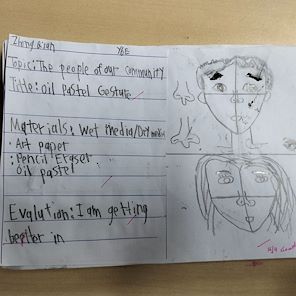 Zhong Qian Y&E
Topic: The people of our community
Title: Oil Pastel Gesture
Materials: Wet media/Dry media
• Art paper
• Pencil Eraser
Oil pastel
Evalution: I am getting
better in